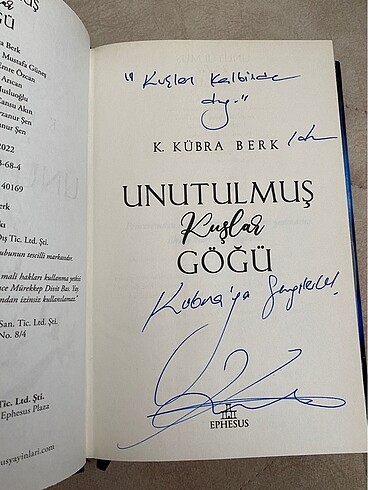 UŞ
Kuşlar
ĞÜ
a Berk
Mustafa Güneş
Emre Özcan
Arıcan
Musluoğlu
Cansu Akın
rzanur Şen
zanur Şen
2022
3-68-4
40169
erk
kı
Dış Tic. Ltd. Şti.
ubunun tescilli markasıdır.
mali hakları kullanma yetkisi
nce Mürekkep Divit Bas. Yay.
ından izinsiz kullanılamaz."
San. Tic. Ltd. Şti.
No. 8/4
ic. Ltd. Şti.
Ephesus Plaza
usyayinlari.com
"Kuşlar kalbinde
K. KÜBRA BERK
UNUTULMUŞ
Kuşlar
GÖĞÜ
Kübra'ya Sevgilerle!
EPHESUS